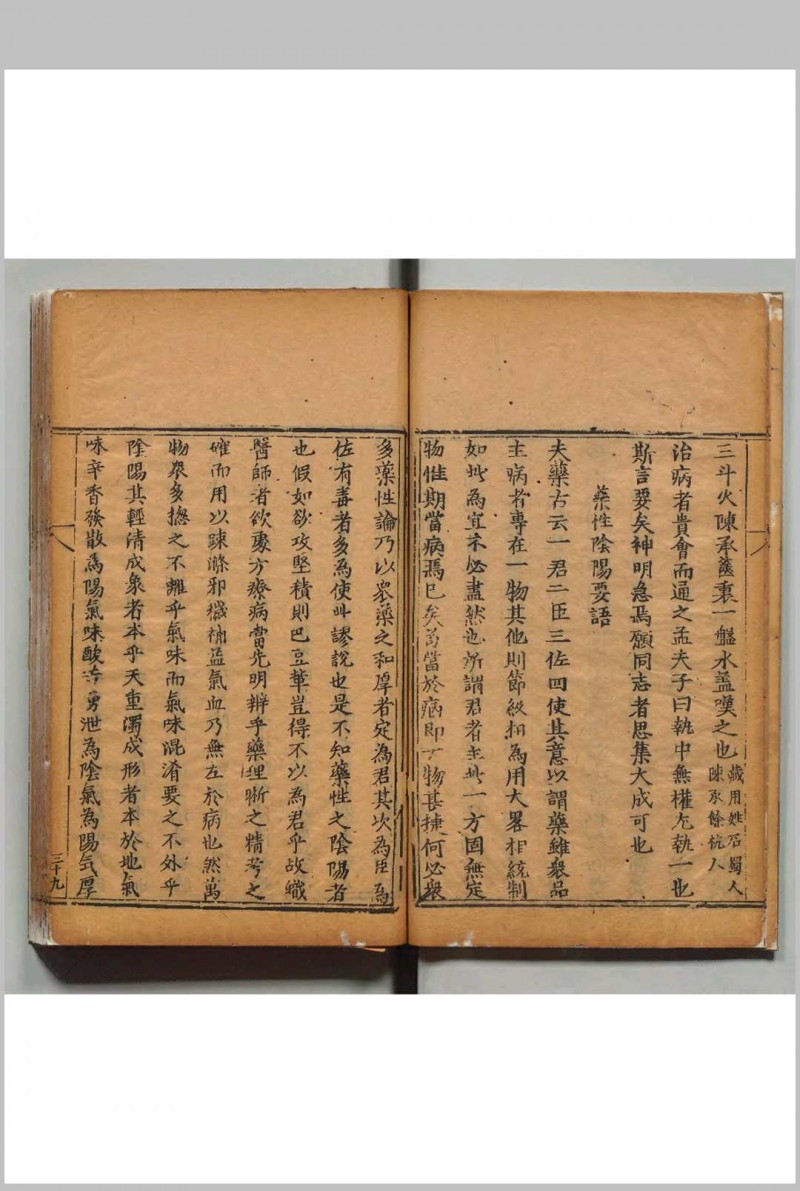 三斗火陳承篋裹一盤水盖嘆之也藏用姓石蜀人陳承餘杭人
治病者貴會而通之孟夫子曰執中無權尤執一也
斯言要矣神明急焉願同志者思集大成可也
藥性陰陽要語
夫藥古云一君二臣三佐四使其意以謂藥雖衆品
主病者專在一物其他則節級相為用大畧相統制
如此為宜不必盡然也所謂君者主此一方固無定
物惟期當病焉已矣苟當於病即一物甚捷何必衆
多藥性論乃以衆藥之和厚者定為君其次為臣為
佐有毒者多為使此謬說也是不知藥性之陰陽者
也假如欲攻堅積則巴豆華豈得不以為君乎故蟙
醫師者欲處方療病當先明辨乎藥理晰之精考之
確而用以踈滌邪穢補益氣血乃無左於病也然萬
物衆多揔之不離乎氣味而氣味混淆要之不外乎
陰陽其輕清成象者本乎天重濁成形者本於地氣
味辛香發散為陽氣味酸涌泄為陰氣為陽氣厚
三十九